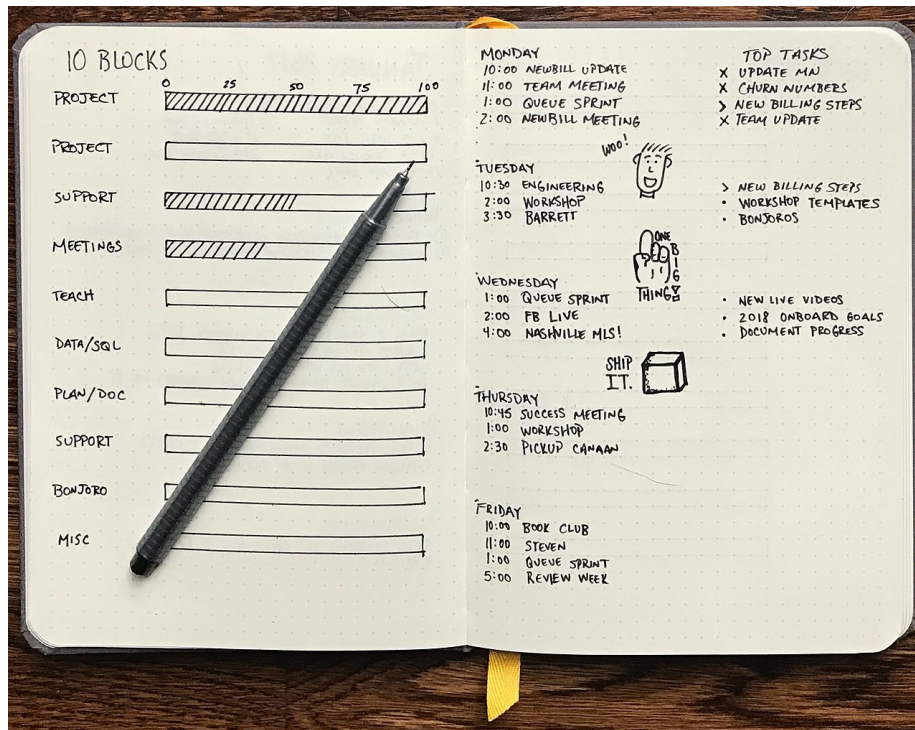 10 BLOCKS
0 25 50 75 100
PROJECT
PROJECT
SUPPORT
MEETINGS
TEACH
DATA/SQL
PLAN/DOC
SUPPORT
BONJORO
MISC
MONDAY
10:00 NEWBILL UPDATE
11:00 TEAM MEETING
1:00 QUEUE SPRINT
2:00 NEWBILL MEETING
WOO!
TUESDAY
10:30 ENGINEERING
2:00 WORKSHOP
3:30 BARRETT
ONE
BIG
THING!
WEDNESDAY
1:00 QUEUE SPRINT
2:00 FB LIVE
4:00 NASHVILLE MLS!
SHIP
IT.
THURSDAY
10:45 SUCCESS MEETING
1:00 WORKSHOP
2:30 PICKUP CANAAN
FRIDAY
10:00 BOOK CLUB
11:00 STEVEN
1:00 QUEUE SPRINT
5:00 REVIEW WEEK
TOP TASKS
X UPDATE MN
X CHURN NUMBERS
> NEW BILLING STEPS
X TEAM UPDATE
> NEW BILLING STEPS
• WORKSHOP TEMPLATES
• BONJOROS
• NEW LIVE VIDEOS
• 2018 ONBOARD GOALS
• DOCUMENT PROGRESS